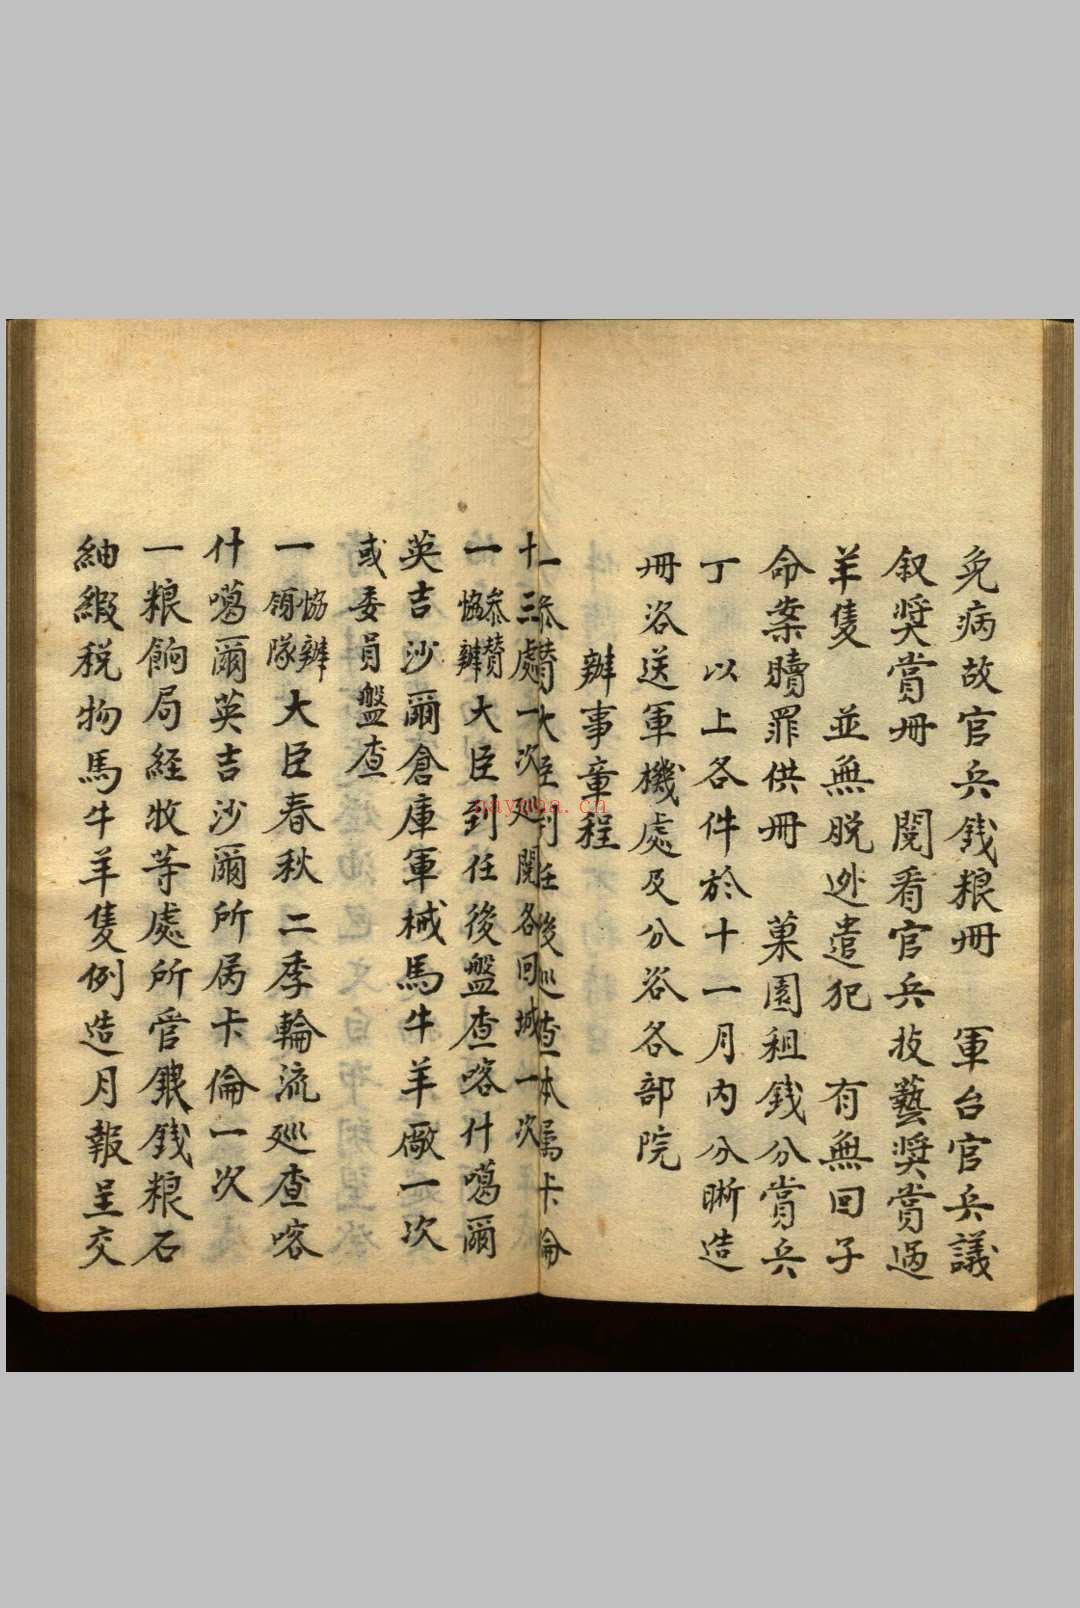 免病故官兵銭粮冊　軍台官兵議
叙奬賞冊　閲看官兵技藝奬賞過
羊隻　並無脱逃遣犯　有無回子
命案贖罪供冊　菓園租銭分賞兵
丁　以上各件於十一月内分晰造
冊咨送軍機處及分咨各部院
辦事章程
一参賛大臣到任後巡查本属卡倫
十三處一次廵閲各回城一次
一参賛協辦大臣到任後盤查喀什噶爾
英吉沙爾倉庫軍械馬牛羊廠一次
或委員盤查
一協辦領隊大臣春秋二季輪流廵查喀
什噶爾英吉沙爾所属卡倫一次
一粮餉局経牧等處所管銀銭粮石
紬緞税物馬牛羊隻例造月報呈交